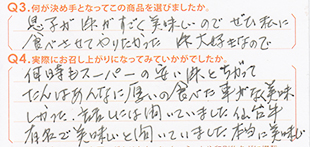 Q3.何が決め手となってこの商品を選びましたか。
息子が味がすごく美味しいのでぜひ私に
食べさせてやりたかった 味大好きなので
Q4.実際にお召し上がりになってみていかがでしたか。
何時もスーパーの安い味とちがって
たんはあんなに厚いの食べた事がない美味
しかった、話には聞いていました仙台牛
有名で美味しいと聞いていました本当に美味し